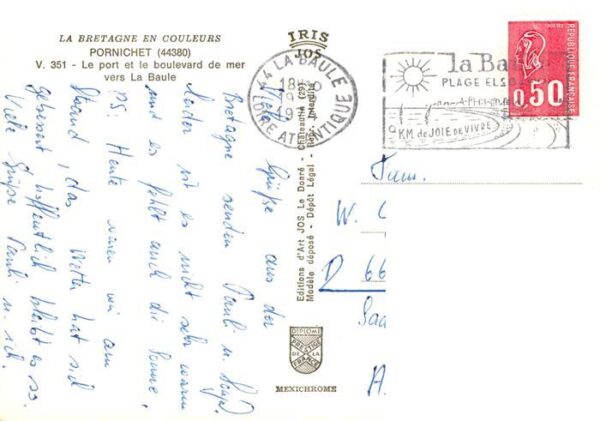 LA BRETAGNE EN COULEURS
PORNICHET (44380)
V. 351 - Le port et le boulevard de mer
vers La Baule
IRIS
JOS
44 LA BAULE
18H
LOIRE ATLANTIQUE
la Bau
PLAGE
9 KM de JOIE DE VIVRE
REPUBLIQUE FRANÇAISE
0,50
Editions d'Art JOS Le Doaré - Châteaulin (29)
Modèle déposé - Dépôt Légal - Rep. interdite
DIPLOME
PRESTIGE
DE LA
FRANCE
MEXICHROME
Grüsse aus der
Bretagne senden Pauli u.
Leider ist es nicht sehr warm
und es fehlt auch die Sonne,
PS! Heute waren wir am
Strand, das Wetter hat sich
gebessert hoffentlich bleibt es so.
Viele Grüße Pauli u. ich.
Fam.
W. C
D 66
Saa
A